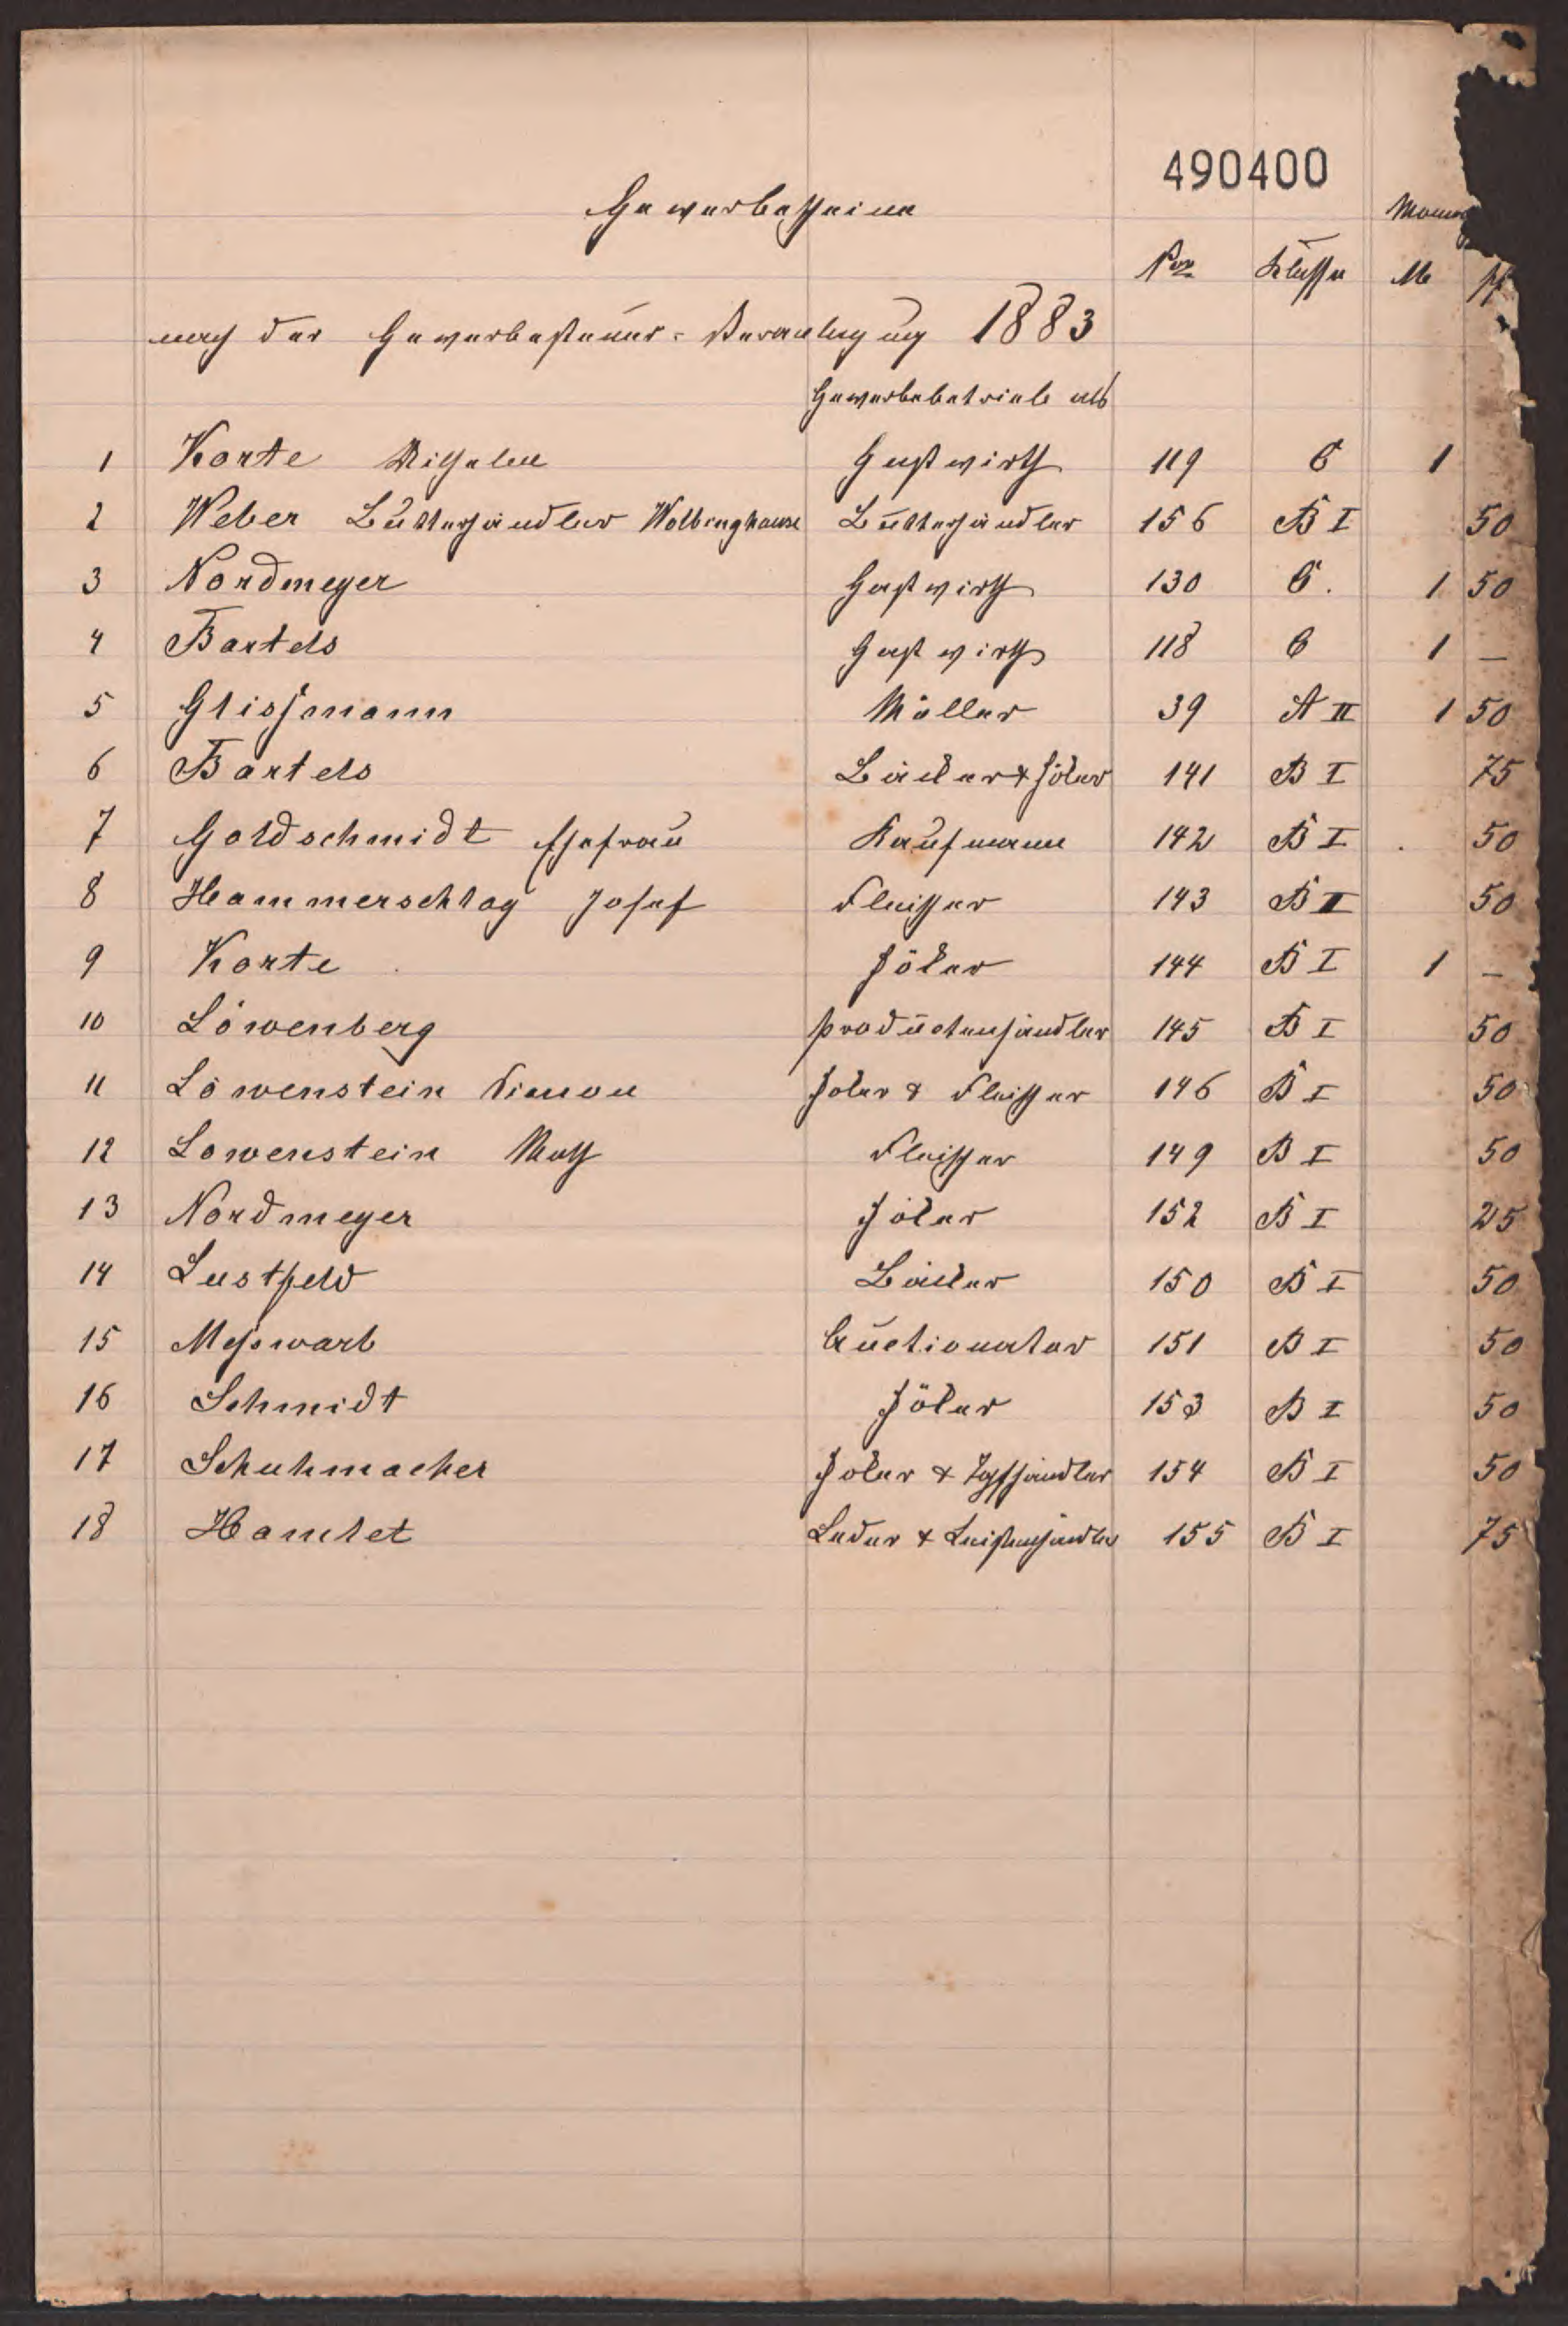 490400
Gewerbescheine
Nro Klasse M Pf
nach der Gewerbesteuer-Veranlagung 1883
Gewerbebetrieb als
1 Korte Wilhelm Gastwirth 119 C 1
2 Weber Butterhändler Wolbringhausen Butterhändler 156 B I 50
3 Nordmeyer Gastwirth 130 C. 1 50
4 Bartels Gastwirth 118 C 1 —
5 Glissmann Müller 39 A II 1 50
6 Bartels Bäcker & Höker 141 B I 75
7 Goldschmidt Ehefrau Kaufmann 142 B I 50
8 Hammerschlag Josef Fleischer 143 B II 50
9 Korte Höker 144 B I 1 —
10 Löwenberg Productenhändler 145 B I 50
11 Löwenstein Simon Höker & Fleischer 146 B I 50
12 Lowenstein Fleischer 149 B I 50
13 Nordmeyer Höker 152 B I 25
14 Lustfeld Bäcker 150 B I 50
15 Messwarb Auctionator 151 B I 50
16 Schmidt Höker 153 B I 50
17 Schuhmacher Höker & Topfhändler 154 B I 50
18 Hamlet Leder & Leistenhändler 155 B I 75